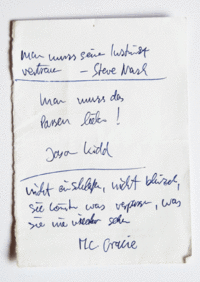 Man muss seine Instinkt
vertrauen – Steve Nash
Man muss das
Passen lieben!
Jason Kidd
nicht einschlafen, nicht blinzeln,
sie könnten was verpassen, was
sie nie wieder sehen
MC Gracie